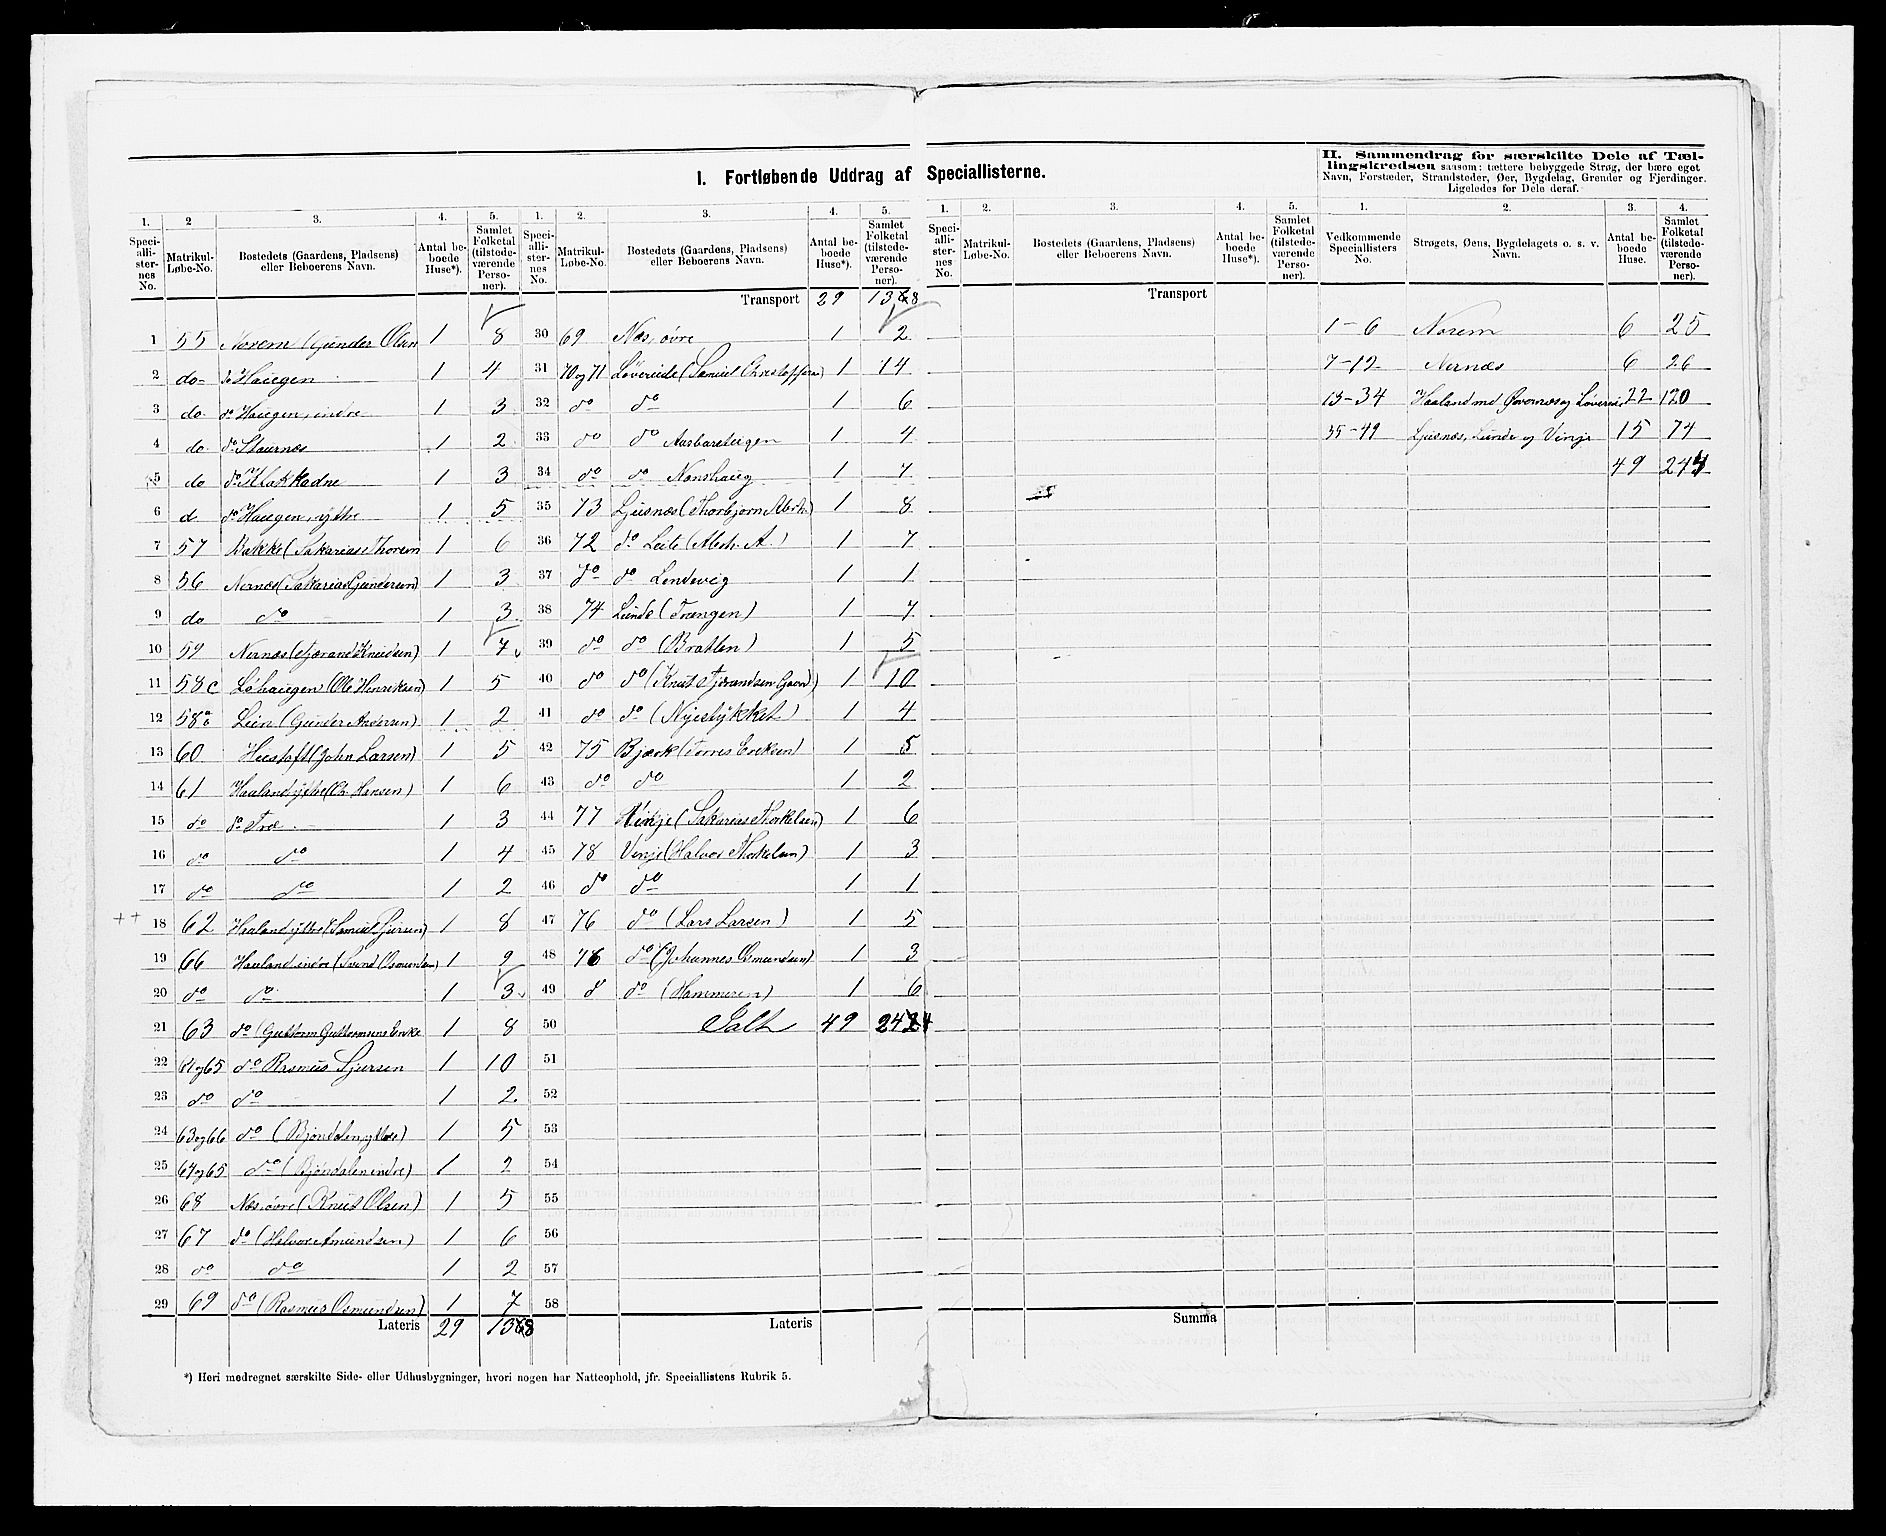 I. Fortløbende Uddrag af Speciallisterne.
II. Sammendrag for særskilte Dele af Tæl-
lingskredsen saasom: tættere bebyggede Strøg, der bære eget
Navn, Forstæder, Strandsteder, Øer, Bygdelag, Grender og Fjerdinger.
Ligeledes for Dele deraf.
1. 2 3. 4. 5. 1. 2. 3. 4. 5. 1. 2. 3. 4. 5. 1. 2. 3. 4.
Speci-alli-ster-nes No. Matrikul-Løbe-No. Bostedets (Gaardens, Pladsens) eller Beboerens Navn. Antal be-boede Huse*). Samlet Folketal (tilstede-værende Perso-ner).
Speci-alli-ster-nes No. Matrikul-Løbe-No. Bostedets (Gaardens, Pladsens) eller Beboerens Navn. Antal be-boede Huse*). Samlet Folketal (tilstede-værende Perso-ner).
Speci-alli-ster-nes No. Matrikul-Løbe-No. Bostedets (Gaardens, Pladsens) eller Beboerens Navn. Antal be-boede Huse*). Samlet Folketal (tilstede-værende Perso-ner).
Vedkommende Speciallisters No. Strøgets, Øens, Bygdelagets o. s. v. Navn. Antal be-boede Huse. Samlet Folketal (tilstede-værende Perso-ner).
1 55 Norem (Gunder Olsen 1 8
2 do- do Haugen 1 4
3 do- do Haugen, indre 1 3
4 do- do Staurnæs 1 2
5 do do Hakkadne 1 3
6 d do Haugen, ytre 1 5
7 57 Bakke (Sakarias Thorsen 1 6
8 56 Nernæs (Sakarias Gundersen) 1 3
9 do do 1 3
10 59 Nernæs (Tjærand Knudsen) 1 7
11 58c Løhaugen (Ole Henriksen) 1 5
12 58 Lein (Gunder Andersen) 1 2
13 60 Heestoft (John Larsen) 1 5
14 61 Haaland ytre (Ch. Hansen) 1 6
15 do do Træ 1 3
16 do do 1 4
17 do do 1 2
++ 18 62 Haaland ytre (Samuel Sjursen) 1 8
19 66 Haaland indre (Svend Osmundsen) 1 9
20 do do 1 3
21 63 do (Guttorm Guttormsens Enke 1 8
22 64 og 65 do Rasmus Sjursen 1 10
23 do do 1 2
24 63 og 66 do (Bjøndalen, ytre) 1 5
25 64 og 65 do (Bjøndalen indre) 1 2
26 68 Næs, øvre (Knut Olsen) 1 5
27 67 do (Halvor Amundsen) 1 6
28 do do 1 2
29 69 do (Rasmus Osmundsen) 1 7
Lateris 29 1368
Transport 29 1368
30 69 Næs, øvre 1 2
31 70 og 71 Løvereide (Samuel Christophersen) 1 14
32 do do 1 6
33 do do Aasbareteigen 1 4
34 do do Nonshaug 1 7
35 73 Ljusnæs (Thorbjørn Abrh.) 1 8
36 72 do Leite (Abrh. A.) 1 7
37 do do Lendevig 1 1
38 74 Lunde (Trængen) 1 7
39 do do (Bratten) 1 5
40 do do (Knut Tjærandsen Gaard) 1 10
41 do do (Nyestykket) 1 4
42 75 Bjærk (Torres Eriksen) 1 5
43 do do 1 2
44 77 Vinje (Sakarias Thorkelsen) 1 6
45 78 Vinje (Halvor Thorkelsen) 1 3
46 do do 1 1
47 76 do (Lars Larsen) 1 5
48 76 do (Johannes Osmundsen) 1 3
49 d do (Hammeren) 1 6
50 Ialt 49 244
51
52
53
54
55
56
57
58
Lateris
Transport
Summa
1-6 Norem 6 25
7-12 Nernæs 6 26
13-34 Haaland med Øvernæs og Løvereide 22 120
35-49 Ljusnæs, Lunde og Vinje 15 74
49 244
*) Heri medregnet særskilte Side- eller Udhusbygninger, hvori nogen har Natteophold, jfr. Speciallistens Rubrik 5.